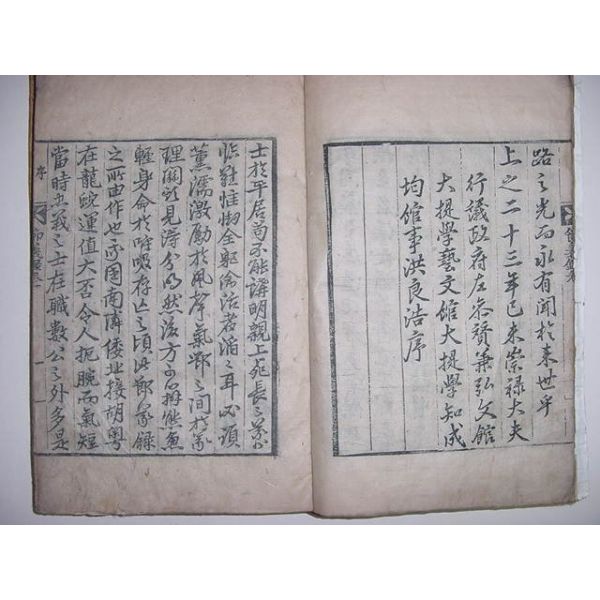 路之光而永有聞於来世乎
上之二十三年己未崇禄大夫
行議政府左叅賛兼弘文館
大提學藝文館大提學知成
均館事洪良浩序
士於平居苟不能講明親上死長之義
臨難惟物全軀偸活者滔之耳必須
薰濡激勵於風聲氣
理關頭見得分明然後方可辦熊魚
輕身命於呼吸存亡之頃此
之所由作也我國南隣倭北接胡粤
在龍蛇運值大否令人扼腕而氣短
當時忠義之士在職數公之外多是
序